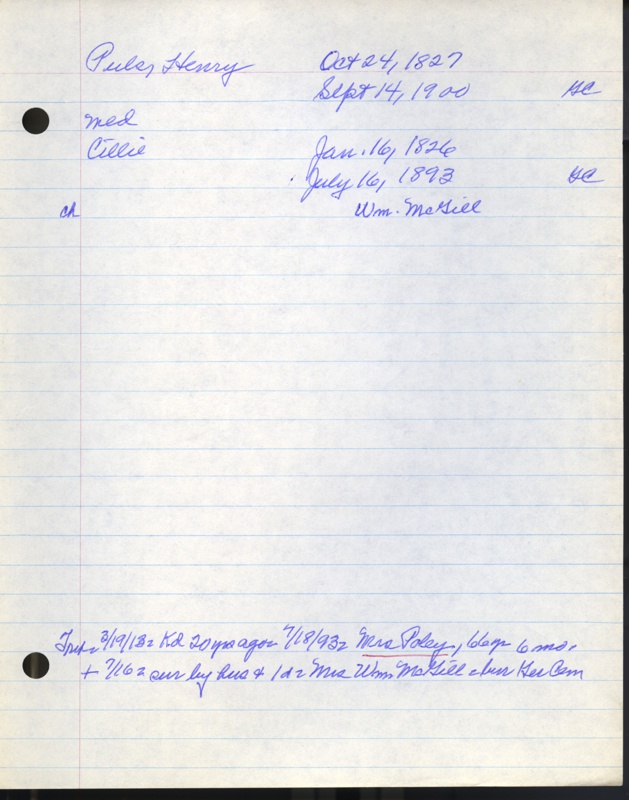 Puls, Henry Oct 24, 1827
Sept 14, 1900 GC
med
Cillie Jan. 16, 1826
July 16, 1893 GC
ch Wm. McGill
3/19/13 = Kd 20 yrs ago = 7/18/93 = Mrs Poley, 66 yr 6 mo.
+ 7/16 = sur by hus + 1 d = Mrs Wm McGill = bur Ger Cem